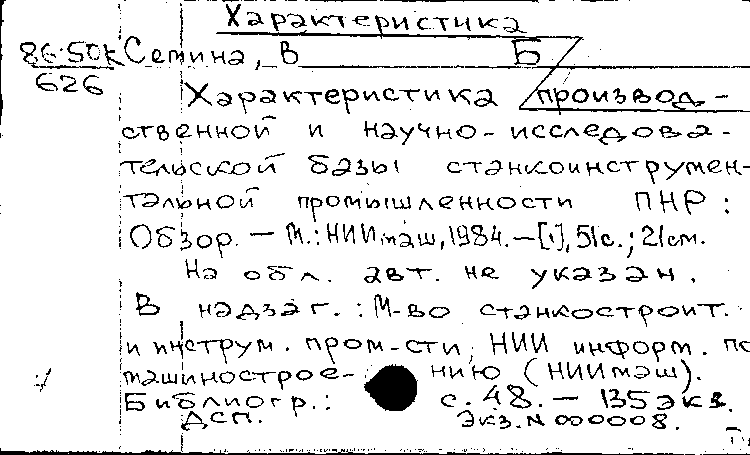 Характеристика
86-50К Семина, В Б
626
Характеристика производ-
ственной и научно-исследова-
тельской базы станкоинструмен-
тальной промышленности ПНР:
Обзор. — М.: НИИмаш, 1984. — [1], 51с.; 21см.
На обл. авт. не указан.
В надзаг.: М-во станкостроит.
и инструм. пром-сти, НИИ информ. по
машинострое- нию (НИИмаш).
Библиогр.: с. 48. — 135 экз.
ДСП. Экз. N 000008.